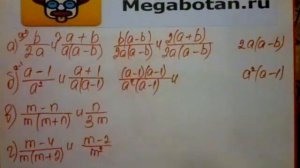 Megabotan.ru
а) b/2a и a+b/a(a-b) b(a-b)/2a(a-b) и 2(a+b)/2a(a-b) 2a(a-b)
б) a-1/a² и a+1/a(a-1) (a-1)(a-1)/a²(a-1) и a²(a-1)
в) m-n/m(m+n) и n/3m
г) m-4/m(m+2) и m-2/m²